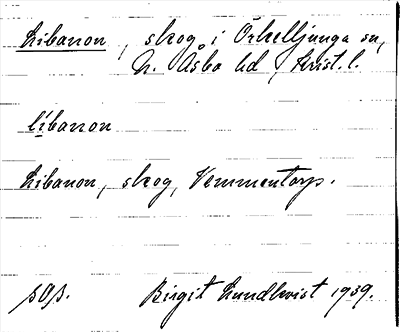 Libanon, skog i Örkelljunga sn,
N. Åsbo hd, Krist. l.
líbanon
Libanon, skog, Vemmentorp.
Birgit Lundkvist 1939.